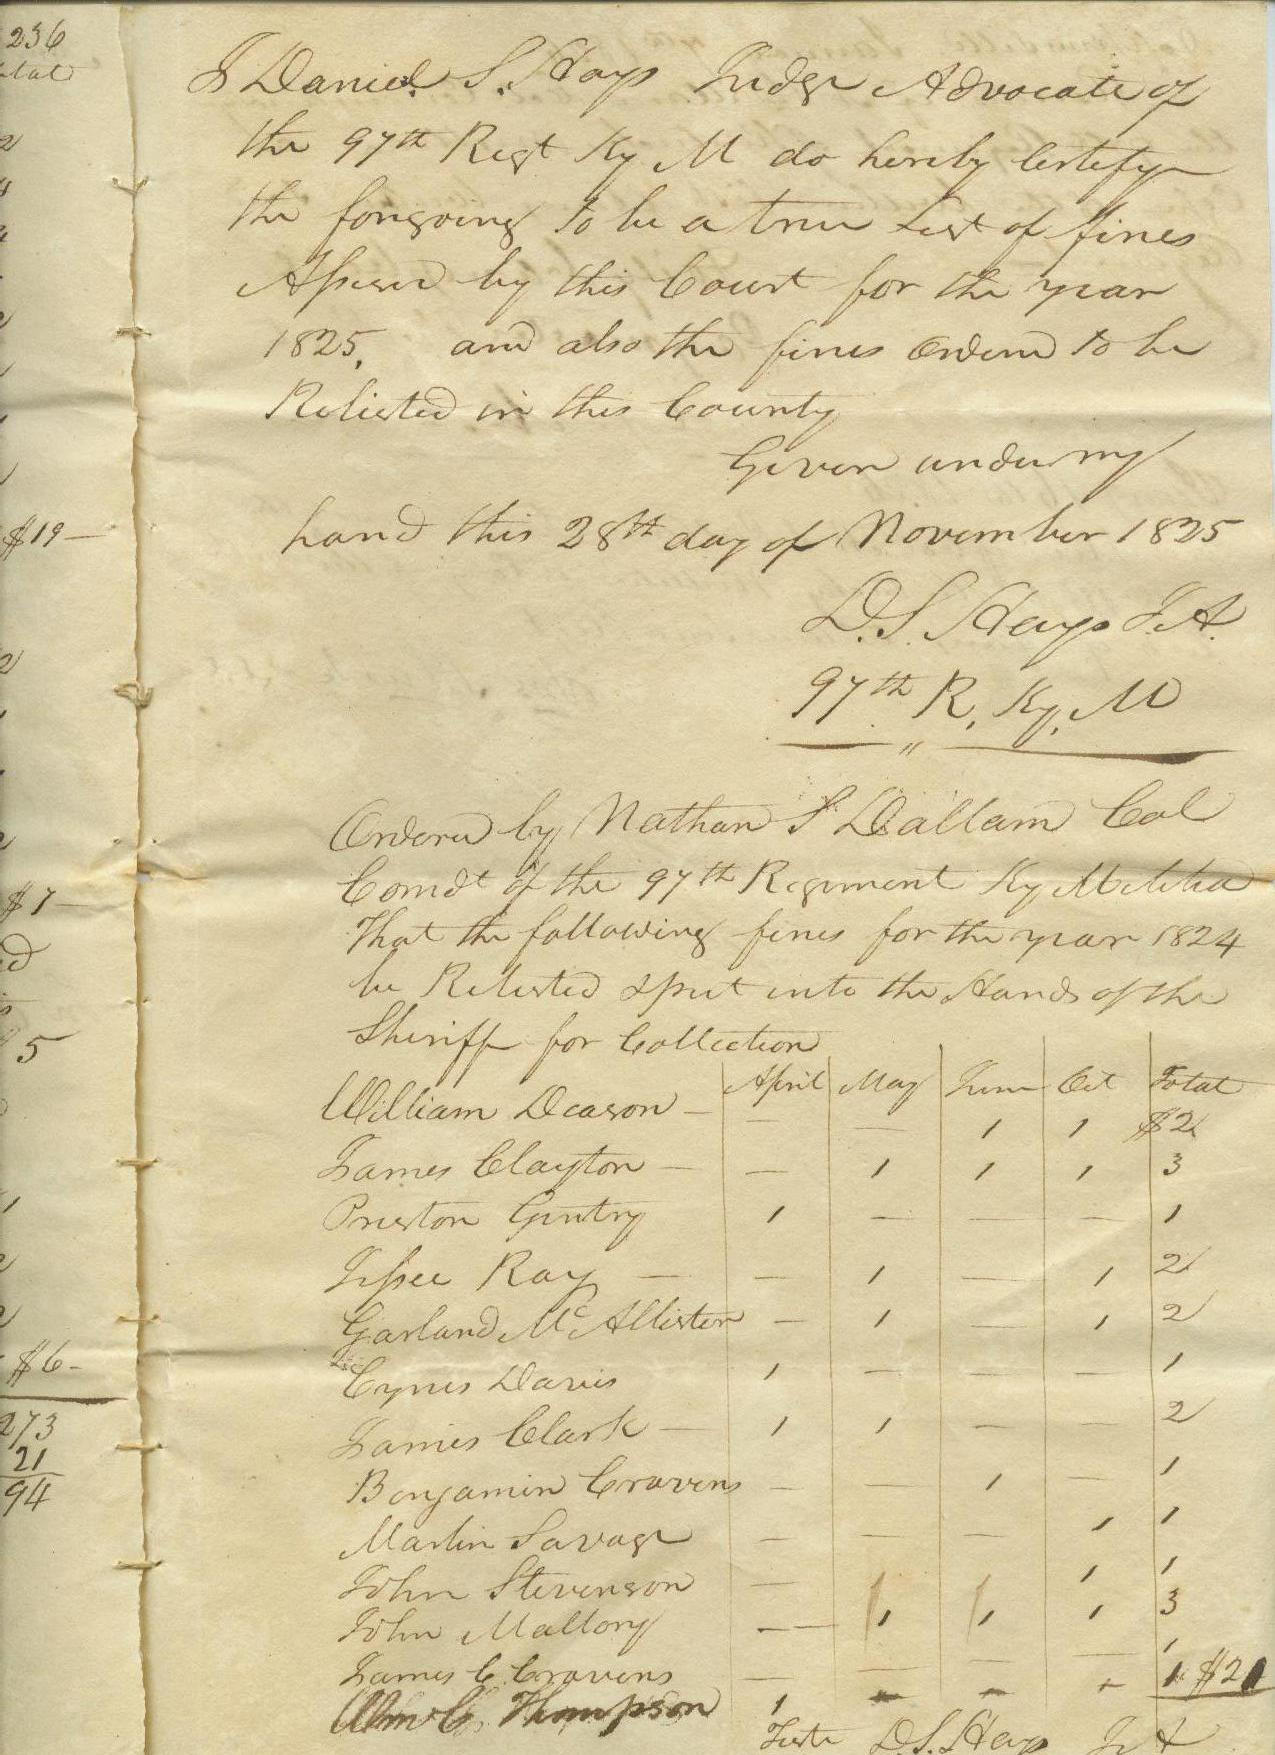 236
$19 —
$7 —
5
$6 -
273
21
94
I Daniel S. Hays Judge Advocate of
the 97th Regt Ky M do hereby Certify
the forgoing to be a true List of fines
Assessed by this Court for the year
1825. and also the fines Ordered to be
Relisted in this County
Given under my
hand this 28th day of November 1825
D. S. Hays J. A.
97th R. Ky. M
Ordered by Nathan S Dallam Col
Comdt of the 97th Regiment Ky Militia
That the following fines for the year 1824
be Relisted & put into the Hands of the
Sheriff for Collection
April May June Oct Total
William Deason — — — 1 1 $2
James Clayton — — 1 1 1 3
Preston Gentry 1 — — — 1
Jessee Ray — — 1 — 1 2
Garland McAllister — 1 — 1 2
Cyrus Davis 1 — — — 1
James Clark — 1 1 — — 2
Benjamin Cravens — — 1 — 1
Martin Savage — — — 1 1
John Stevenson — 1 1
John Mallory — 1 1 1 3
James C Cravens — — — — 1
Wm C. Thompson 1 — — — 1 $21
Teste D. S. Hays J A